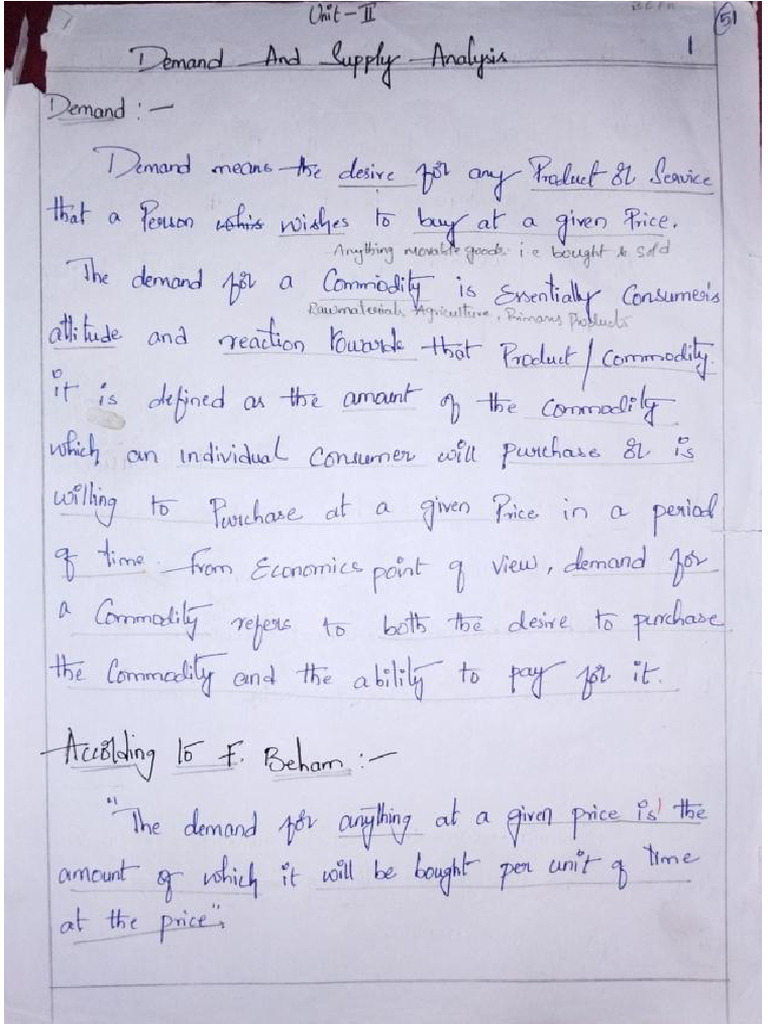 Unit-II
51
1
Demand And Supply Analysis
Demand :-
Demand means the desire for any Product or Service
that a Person who is wishes to buy at a given Price.
Anything movable goods i e bought & sold
The demand for a Commodity is Essentially Consumer's
Rawmaterials Agriculture, Primary Products
attitude and reaction towards that Product/Commodity.
it is defined as the amount of the commodity
which an individual consumer will purchase or is
willing to Purchase at a given Price in a period
of time. From Economics point of view, demand for
a Commodity refers to both the desire to purchase
the Commodity and the ability to pay for it.
According to F. Beham :-
"The demand for anything at a given price is the
amount of which it will be bought per unit of time
at the price".